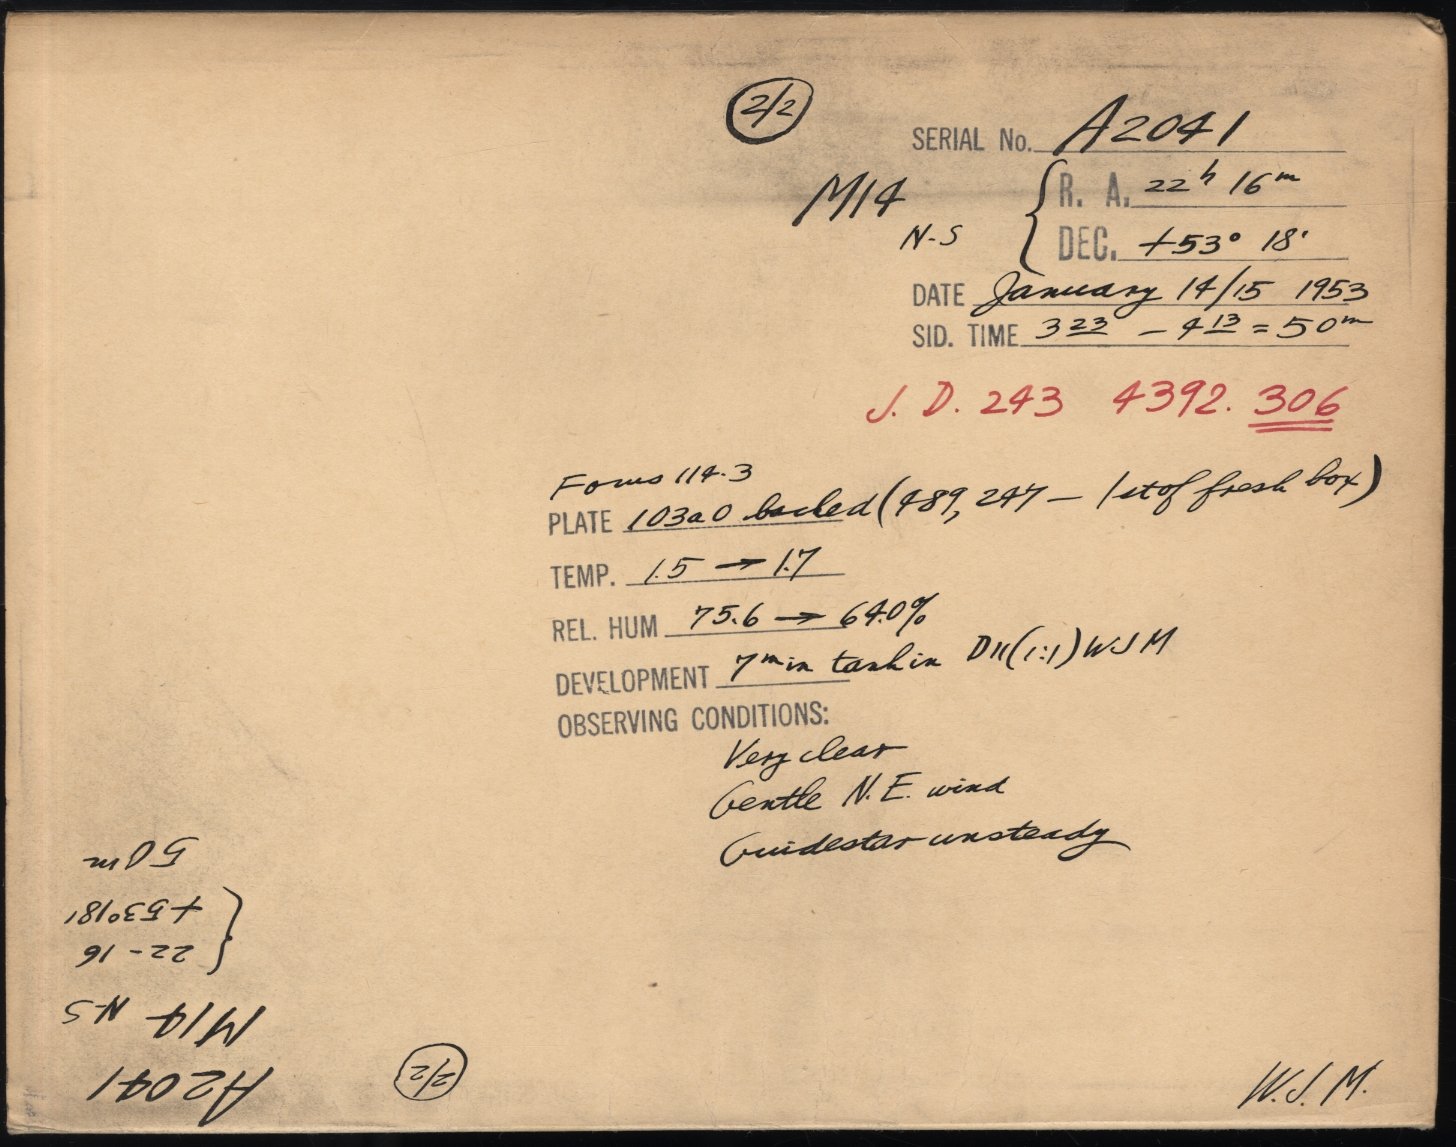 2/2
SERIAL No. A2041
M14 N-S
R. A. 22h 16m
DEC. +53° 18'
DATE January 14/15 1953
SID. TIME 3 23 - 4 13 = 50m
J. D. 243 4392.306
Focus 114.3
PLATE 103a0 backed (489,247 - 1st of fresh box)
TEMP. 1.5 → 1.7
REL. HUM 75.6 → 64.0%
DEVELOPMENT 7 min tank in D11 (1:1) WJM
OBSERVING CONDITIONS:
Very clear
Gentle N.E. wind
Guidestar unsteady
W.J.M.
2/2
A2041
M14 N-S
22-16
+53°18'
50m